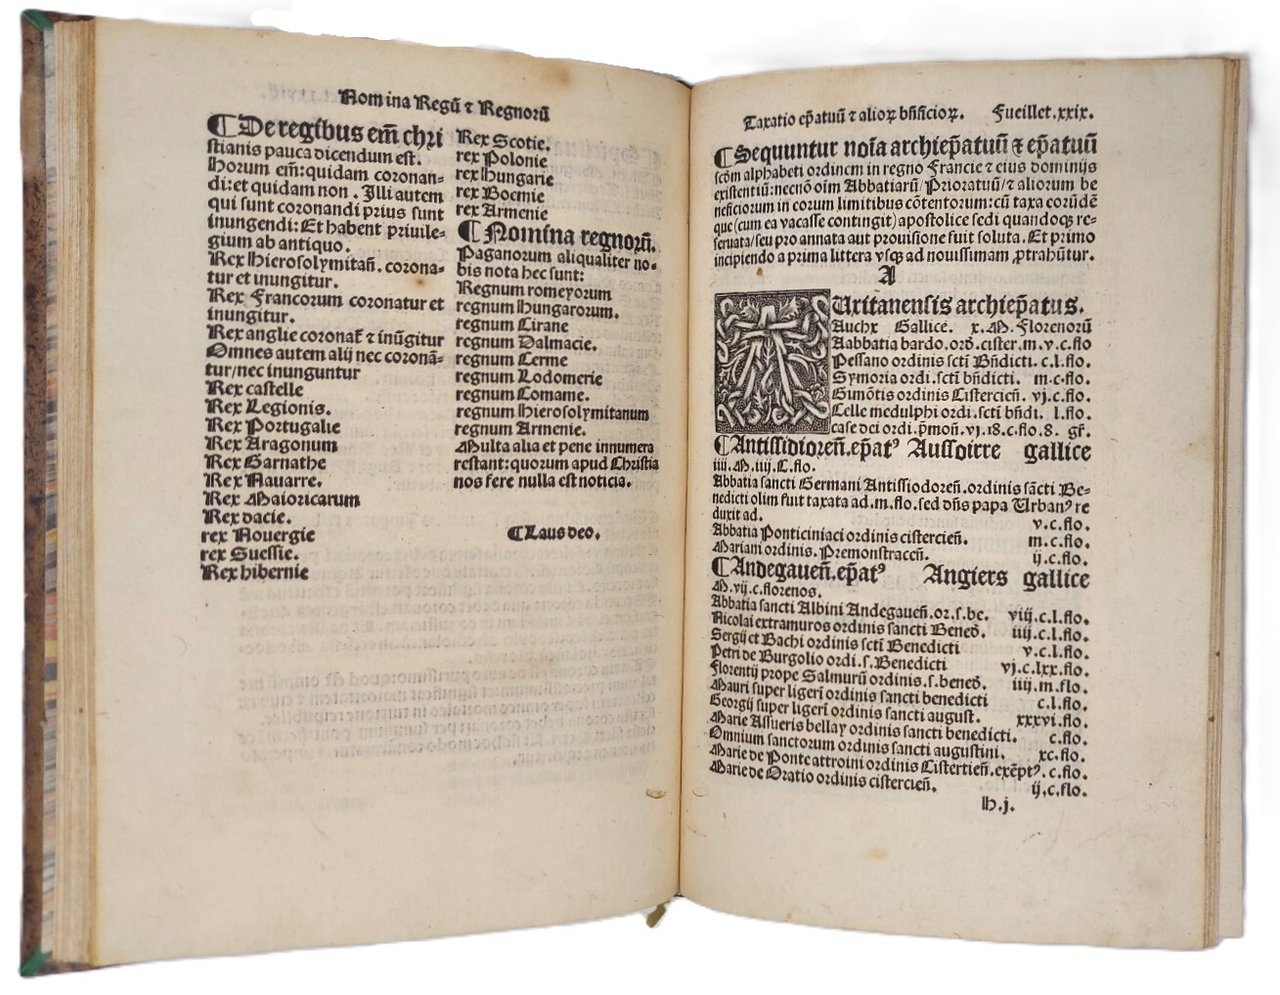 Nomina Regū ⁊ Regnorū
¶ De regibus em̄ chri
stianis pauca dicendum est.
Horum em̄: quidam coronan-
di: et quidam non . Illi autem
qui sunt coronandi prius sunt
inungendi: Et habent priuile-
gium ab antiquo.
Rex Hierosolymitan̄. corona-
tur et inungitur.
Rex Francorum coronatur et
inungitur.
Rex anglie coronat̄ ⁊ inūgitur
Omnes autem alij nec coronā-
tur/nec inunguntur
Rex castelle
Rex Legionis.
Rex Portugalie
Rex Aragonum
Rex Garnathe
Rex Nauarre.
Rex Maioricarum
Rex dacie.
rex Nouergie
rex Suessie.
Rex hibernie
Rex Scotie.
rex Polonie
rex Hungarie
rex Boemie
rex Armenie
¶ Nomina regnorū.
Paganorum aliqualiter no-
bis nota hec sunt:
Regnum romeyorum
regnum Hungarorum.
regnum Cirane
regnum Dalmacie.
regnum Cerme
regnum Lodomerie
regnum Comame.
regnum Hierosolymitanum
regnum Armenie.
Multa alia et pene innumera
restant: quorum apud Christia
nos fere nulla est noticia.
¶ Laus deo.
Taxatio ep̄atuū ⁊ alioꝝ bn̄ficioꝝ. Fueillet.xxix.
¶ Sequuntur noīa archiep̄atuū ⁊ ep̄atuū
scd̄m alphabeti ordinem in regno Francie ⁊ eius dominijs
existentiū: necnō oīm Abbatiarū/Prioratuū/⁊ aliorum be
neficiorum in eorum limitibus cōtentorum: cū taxa eorūdē
que (cum ea vacasse contingit) apostolice sedi quandoqꝫ re-
seruata/seu pro annata aut prouisione fuit soluta. Et primo
incipiendo a prima littera vsqꝫ ad nouissimam ꝓtrahūtur.
A
AUxitanensis archiep̄atus.
Auchx Gallice. x.M. Florenorū
Aabbatia bardo.ord̄.cister.m.v.c.flo
Pessano ordinis scti Bn̄dicti. c.l.flo.
Symoria ordi.scti bn̄dicti. m.c.flo.
Gimōtis ordinis Cistercien̄. vj.c.flo.
Celle medulphi ordi.scti bn̄di. l.flo.
case dei ordi.p̄mon̄.vj.18.c.flo.8. gr̄.
¶ Antissidioren̄.ep̄atꝰ Aussoirre gallice
iiij.M.iiij.C.flo.
Abbatia sancti Germani Antissiodoren̄.ordinis sācti Be-
nedicti olim fuit taxata ad.m.flo.sed dn̄s papa Urbanꝰ re
duxit ad. v.c.flo.
Abbatia Ponticiniaci ordinis cistercien̄. m.c.flo.
Mariani ordinis. Premonstracen̄. ij.c.flo.
¶ Andegauen̄.ep̄atꝰ Angiers gallice
M.vij.c.florenos.
Abbatia sancti Albini Andegauen̄.or.s.be. viij.c.l.flo.
Nicolai extramuros ordinis sancti Bened̄. iiij.c.l.flo.
Sergij et Bachi ordinis scti Benedicti v.c.l.flo.
Petri de Burgolio ordi.s.Benedicti vj.c.lxx.flo.
Florentij prope Salmurū ordinis.s.bened̄. iiij.m.flo.
Mauri super ligerī ordinis sancti benedicti c.l.flo.
Georgij super ligerī ordinis sancti august. xxxvj.flo.
Marie Assueris bellay ordinis sancti benedicti. c.flo.
Omnium sanctorum ordinis sancti augustini. xc.flo.
Marie de Ponte attroini ordinis Cistertien̄.exēptꝰ.c.flo.
Marie de Oratio ordinis cistercien̄. ij.c.flo.
H.j.